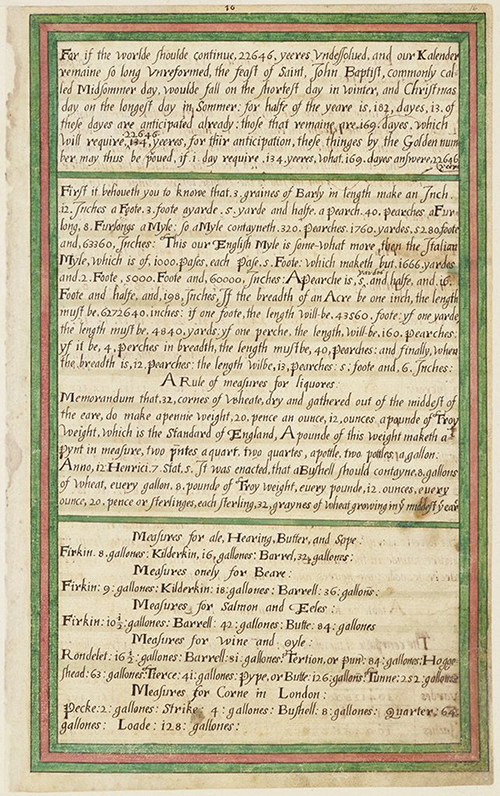 16
For if the worlde shoulde continue, 22646, yeeres Vndessolued, and our Kalender
remaine so long Vnreformed, the feast of Saint, John Baptist, commonly cal-
led Midsommer day, woulde fall on the shortest day in Winter, and Christmas
day on the longest day in Sommer: for halfe of the yeare is .182, dayes, 13. of
these dayes are anticipated already: those that remaine, pre. 169. dayes. which
22646
will require, 134, yeeres, for thir anticipation, these thinges by the Golden num
ber may thus be proued, if 1 day require .134, yeeres, what .169. dayes answere, 22646
yeeres
First it behoueth you to knowe that .3. graines of Barly in length make an Inch
.12. Inches a Foote. 3. foote a yarde. 5. yarde and halfe. a pearch. 40. pearches a Fur-
long, 8. Furlongs a Myle: so a Myle contayneth .320. pearches. 1760. yardes. 5280 foote
and, 63360, Inches: This our English Myle is some-what more, then the Italian
Myle, which is of .1000. pases, each pase .5. Foote: which maketh but .1666. yardes
and .2. Foote, 5000. Foote and, 60000, Inches: A pearche is, 5, yardes and halfe, and .16.
Foote and halfe, and, 198, Inches, If the breadth of an Acre be one inch, the length
must be. 6272640. inches: if one foote, the length will-be. 43560. foote: yf one yarde
the length must be. 4840. yards: yf one perche, the length, will-be, 160. pearches:
yf it be, 4, perches in breadth, the length must be, 40, pearches: and finally, when
the breadth is, 12, pearches: the length wilbe, 13, pearches: 5: foote and, 6. Inches:
A Rule of measures for liquores:
Memorandum that, 32, cornes of wheate, dry and gathered out of the middest of
the eare, do make a pennie weight, 20. pence an ounce, 12, ounces a pounde of Troy
Weight, which is the Standard of England, A pounde of this weight maketh a
pynt in measure, two pintes a quart, two quartes, a pottle, two pottles, a gallon:
Anno, 12 Henrici. 7 Stat, 5. It was enacted, that a Bushell should contayne. 8. gallons
of wheat, euery gallon, 8. pounde of Troy weight, euery pounde, 12. ounces, euery
ounce, 20. pence or sterlinges, each sterling, 32, graynes of wheat growing in yͤ middest yͤ eare
Measures for ale, Hearing, Butter, and Sope:
Firkin. 8. gallones: Kilderkin, 16, gallones: Barrel, 32, gallones:
Measures onely for Beare:
Firkin: 9: gallones: Kilderkin: 18: gallones: Barrell: 36: gallons:
Measures for Salmon and Eeles:
Firkin: 10½: gallones: Barrell: 42: gallones: Butte: 84: gallones
Measures for Wine and Oyle:
Rondelet: 16½: gallones: Barrell: 31: gallones: Tertion, or pun: 84: gallones: Hogge
shead: 63: gallones: Tierce: 41: gallones: Pype, or Butte: 126: gallons: Tunne: 252: gallones:
Measures for Corne in London:
Pecke: 2: gallones: Strike: 4: gallones: Bushell: 8: gallones: Quarter: 64
gallones: Loade: 128: gallones: